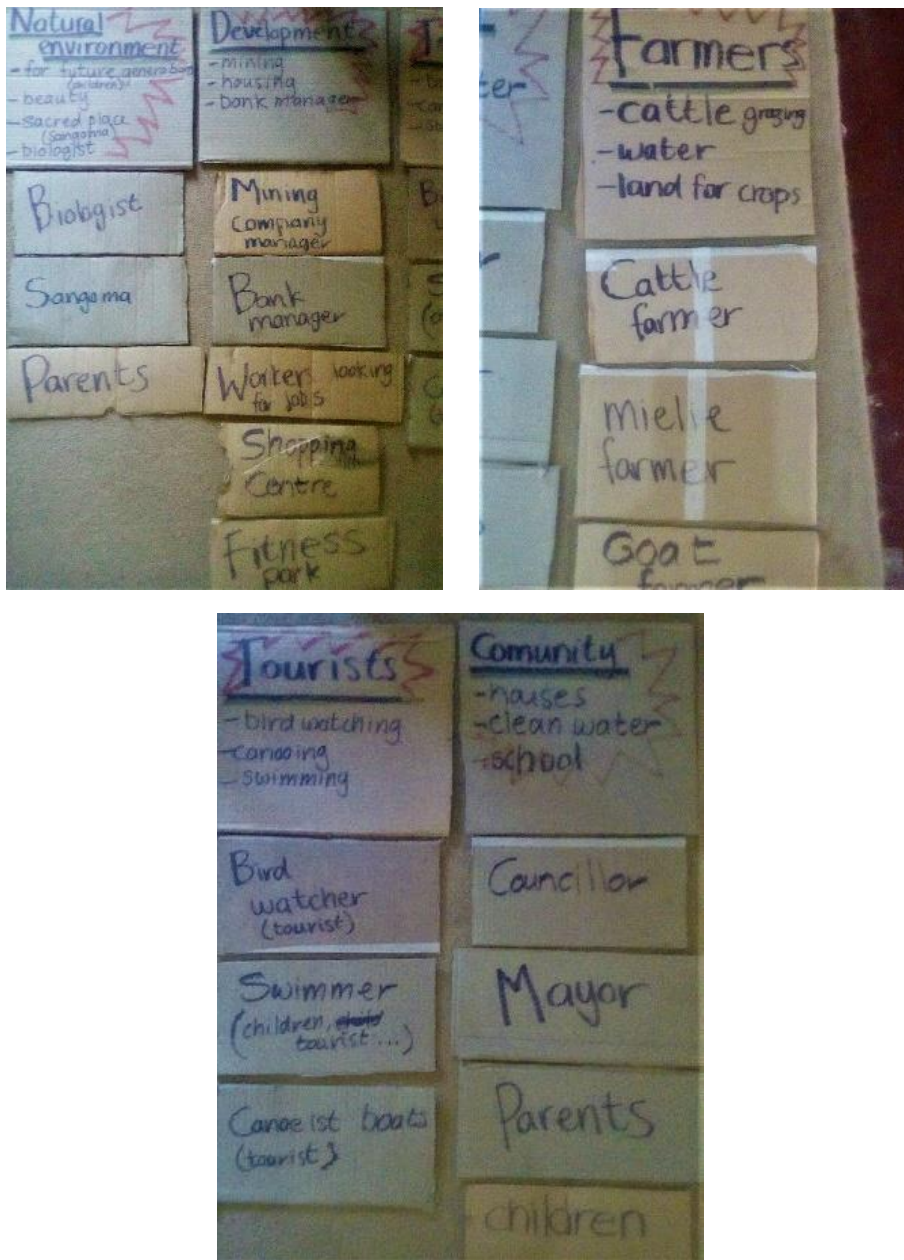 Natural
environment
- for future generation
(children)
- beauty
- sacred place
(Sangoma)
- biologist
Biologist
Sangoma
Parents
Development
- mining
- housing
- bank manager
Mining
Company
manager
Bank
manager
Worker looking
for jobs
Shopping
Centre
Fitness
park
ter
Farmers
- cattle grazing
- water
- land for crops
Cattle
farmer
Mielie
farmer
Goat
farmer
Tourists
- bird watching
- canooing
- swimming
Bird
watcher
(tourist)
Swimmer
(children,
tourist...)
Canoeist boats
(tourist)
Comunity
- houses
- clean water
- school
Councillor
Mayor
Parents
children